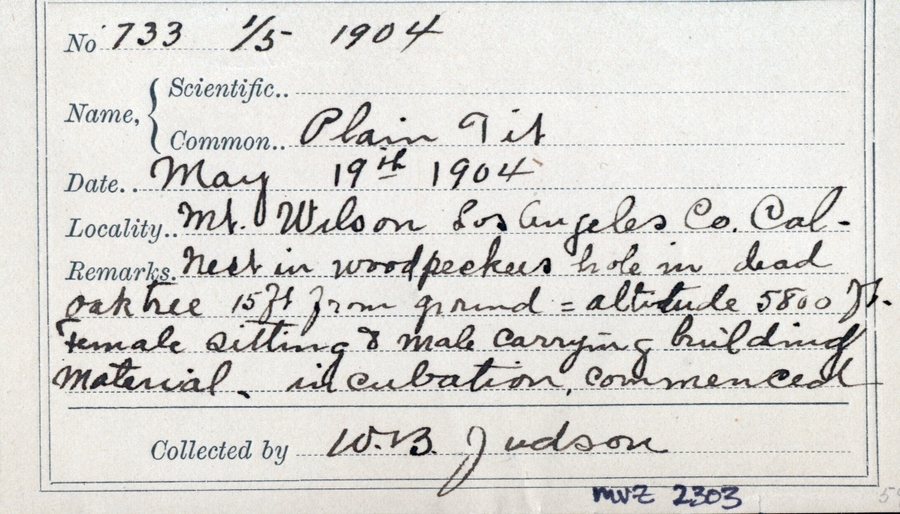 No 733 1/5 1904
Scientific..
Name,
Common.. Plain Tit
Date.. May 19th 1904
Locality.. Mt. Wilson Los Angeles Co. Cal-
Remarks. Nest in woodpeckers hole in dead
oak tree 15 ft from ground = altitude 5800 ft.
Female sitting & male carrying building
material. incubation, commenced
Collected by W.B. Judson
MVZ 2303